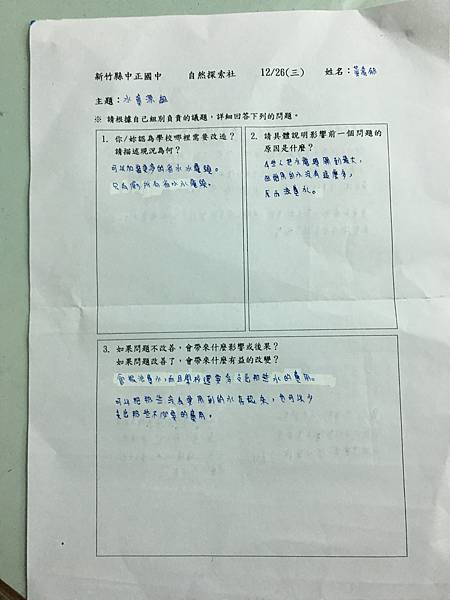 新竹縣中正國中 自然探索社 12/26(三) 姓名：黃
主題：水資源組
※ 請根據自己組別負責的議題，詳細回答下列的問題。
1. 你/妳認為學校哪裡需要改造？
請描述現況為何？
可以加裝更多的省水水龍頭。
只有廁所有省水水龍頭。
2. 請具體說明影響前一個問題的
原因是什麼？
有些人把水龍頭開到最大，
但能用的水沒有這麼多，
反而浪費水。
3. 如果問題不改善，會帶來什麼影響或後果？
如果問題改善了，會帶來什麼有益的改變？
會很浪費水，而且學校還要多支出那些水的費用。
可以把那些沒有使用到的水存起來，也可以少
支出那些不必要的費用。